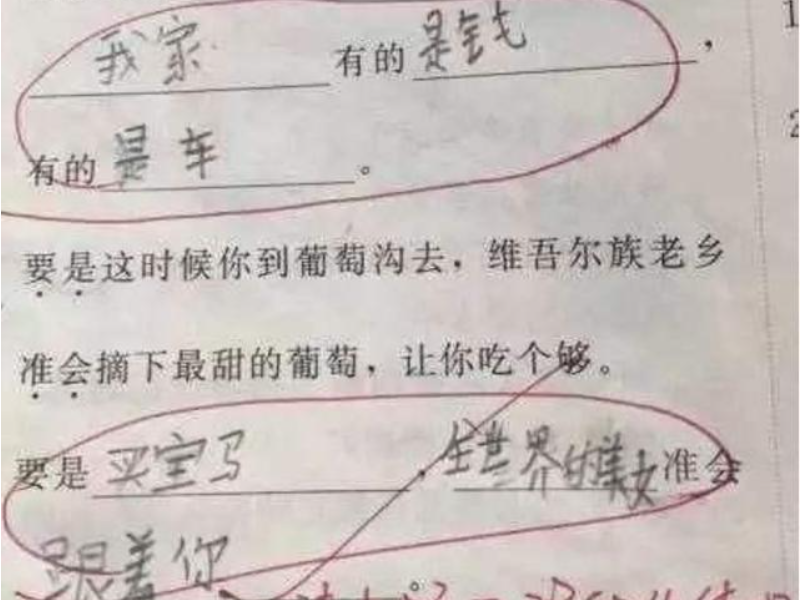 我家有的是钱，
有的是车。
要是这时候你到葡萄沟去，维吾尔族老乡
准会摘下最甜的葡萄，让你吃个够。
要是买宝马，全世界的美女准会
跟着你。